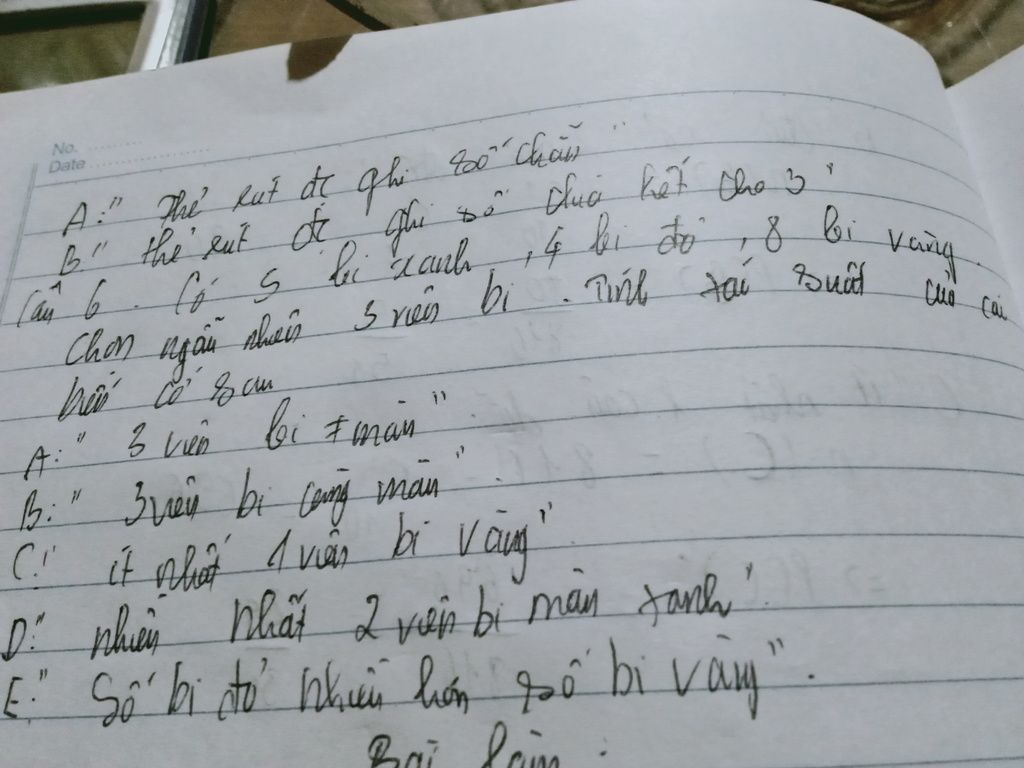 No. ........
Date ....................
A:" Thẻ rút đc ghi số chẵn"
B:" thẻ rút đc ghi số chia hết cho 3"
Câu 6. Có 5 bi xanh, 4 bi đỏ, 8 bi vàng.
Chọn ngẫu nhiên 3 viên bi. Tính xác suất của các
biến cố sau
A:" 3 viên bi ≠ màu"
B:" 3 viên bi cùng màu".
C:" ít nhất 1 viên bi vàng".
D:" nhiều nhất 2 viên bi màu xanh".
E:" Số bi đỏ nhiều hơn số bi vàng".
Bài làm: